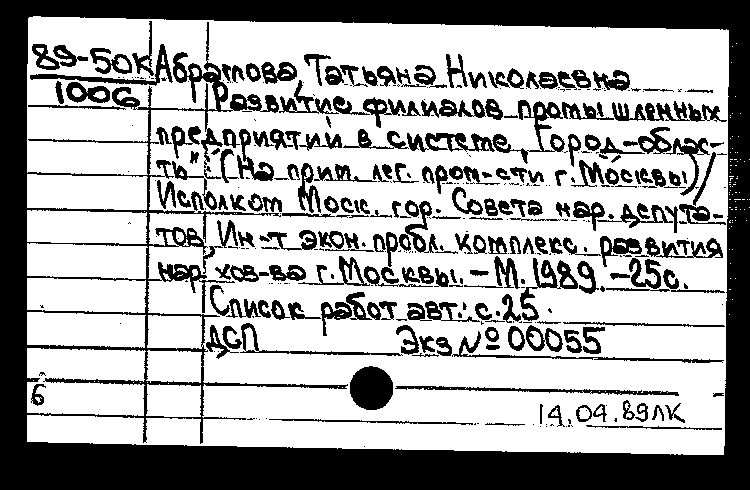 89-50К Абрамова, Татьяна Николаевна
1006 Развитие филиалов промышленных
предприятий в системе „Город-облас-
ть" : (На прим. лег. пром-сти г. Москвы) /
Исполком Моск. гор. Совета нар. депута-
тов, Ин-т экон. пробл. комплекс. развития
нар. хоз-ва г. Москвы. - М. 1989. - 25с.
Список работ авт.: с. 25.
ДСП Экз № 00055
6
14.04.89ЛК